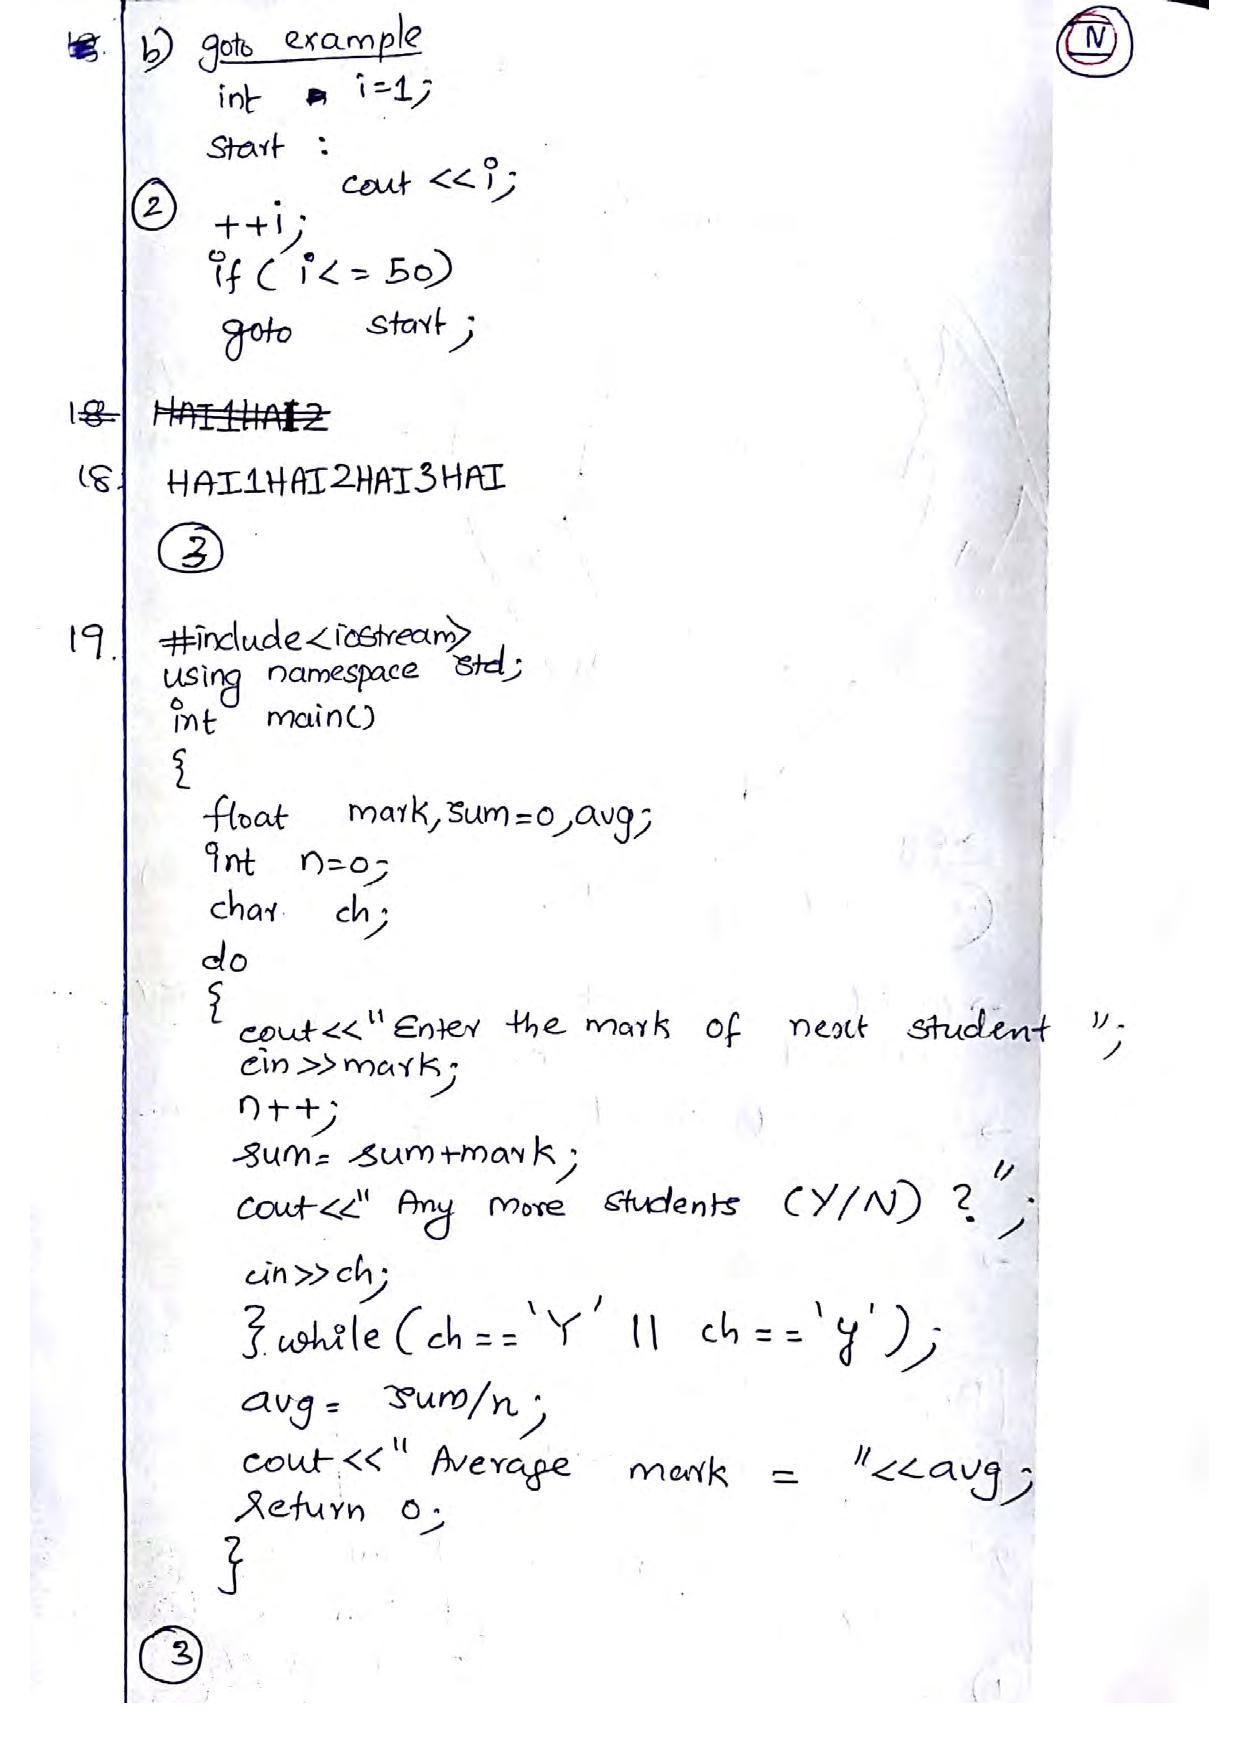 b) goto example
N
int i=1;
start :
cout <<i;
2
++i;
if ( i<= 50)
goto start;
18 HAI1HAI2
18. HAI1HAI2HAI3HAI
3
19. #include<iostream>
using namespace std;
int main()
{
float mark, sum=0, avg;
int n=0;
char ch;
do
{
cout<<"Enter the mark of next student ";
cin>>mark;
n++;
sum= sum+mark;
cout<<" Any more students (Y/N) ? ";
cin>>ch;
}while (ch=='Y' || ch=='y');
avg= sum/n;
cout<<" Average mark = "<<avg;
return 0;
}
3